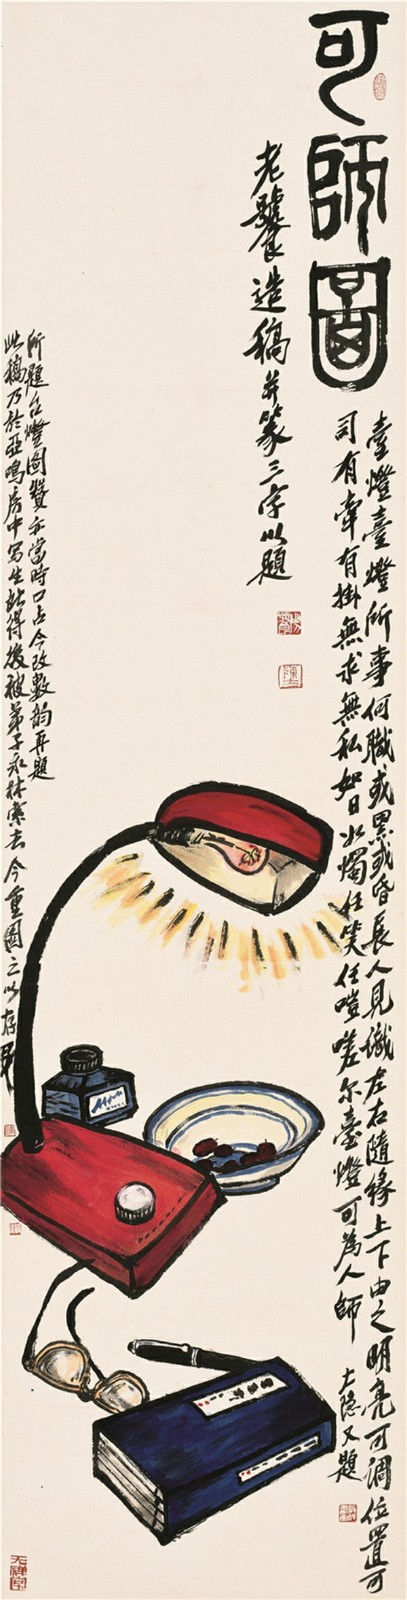 可師圖
老饕造稿并篆三字以題
臺燈臺燈所事何職或累或昏長人見識左右隨緣上下由之明亮可調位置可
司有牽有掛無求無私如日如燭任笑任嗤嗟尔臺燈可為人師
大隐又題
所題台燈圖贊亦當時口占今改數韵再題
此稿乃於亞鳴房中写生
得後被弟子永林索去今重圖之以存